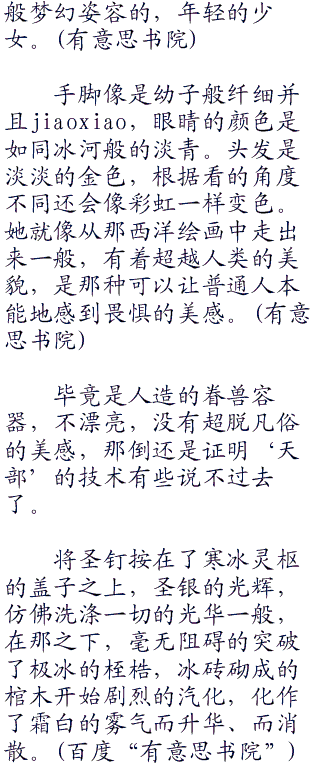 般梦幻姿容的，年轻的少
女。(有意思书院)
手脚像是幼子般纤细并
且jiaoxiao，眼睛的颜色是
如同冰河般的淡青。头发是
淡淡的金色，根据看的角度
不同还会像彩虹一样变色。
她就像从那西洋绘画中走出
来一般，有着超越人类的美
貌，是那种可以让普通人本
能地感到畏惧的美感。(有意
思书院)
毕竟是人造的眷兽容
器，不漂亮，没有超脱凡俗
的美感，那倒还是证明‘天
部’的技术有些说不过去
了。
将圣钉按在了寒冰灵枢
的盖子之上，圣银的光辉，
仿佛洗涤一切的光华一般，
在那之下，毫无阻碍的突破
了极冰的桎梏，冰砖砌成的
棺木开始剧烈的汽化，化作
了霜白的雾气而升华、而消
散。(百度“有意思书院”)